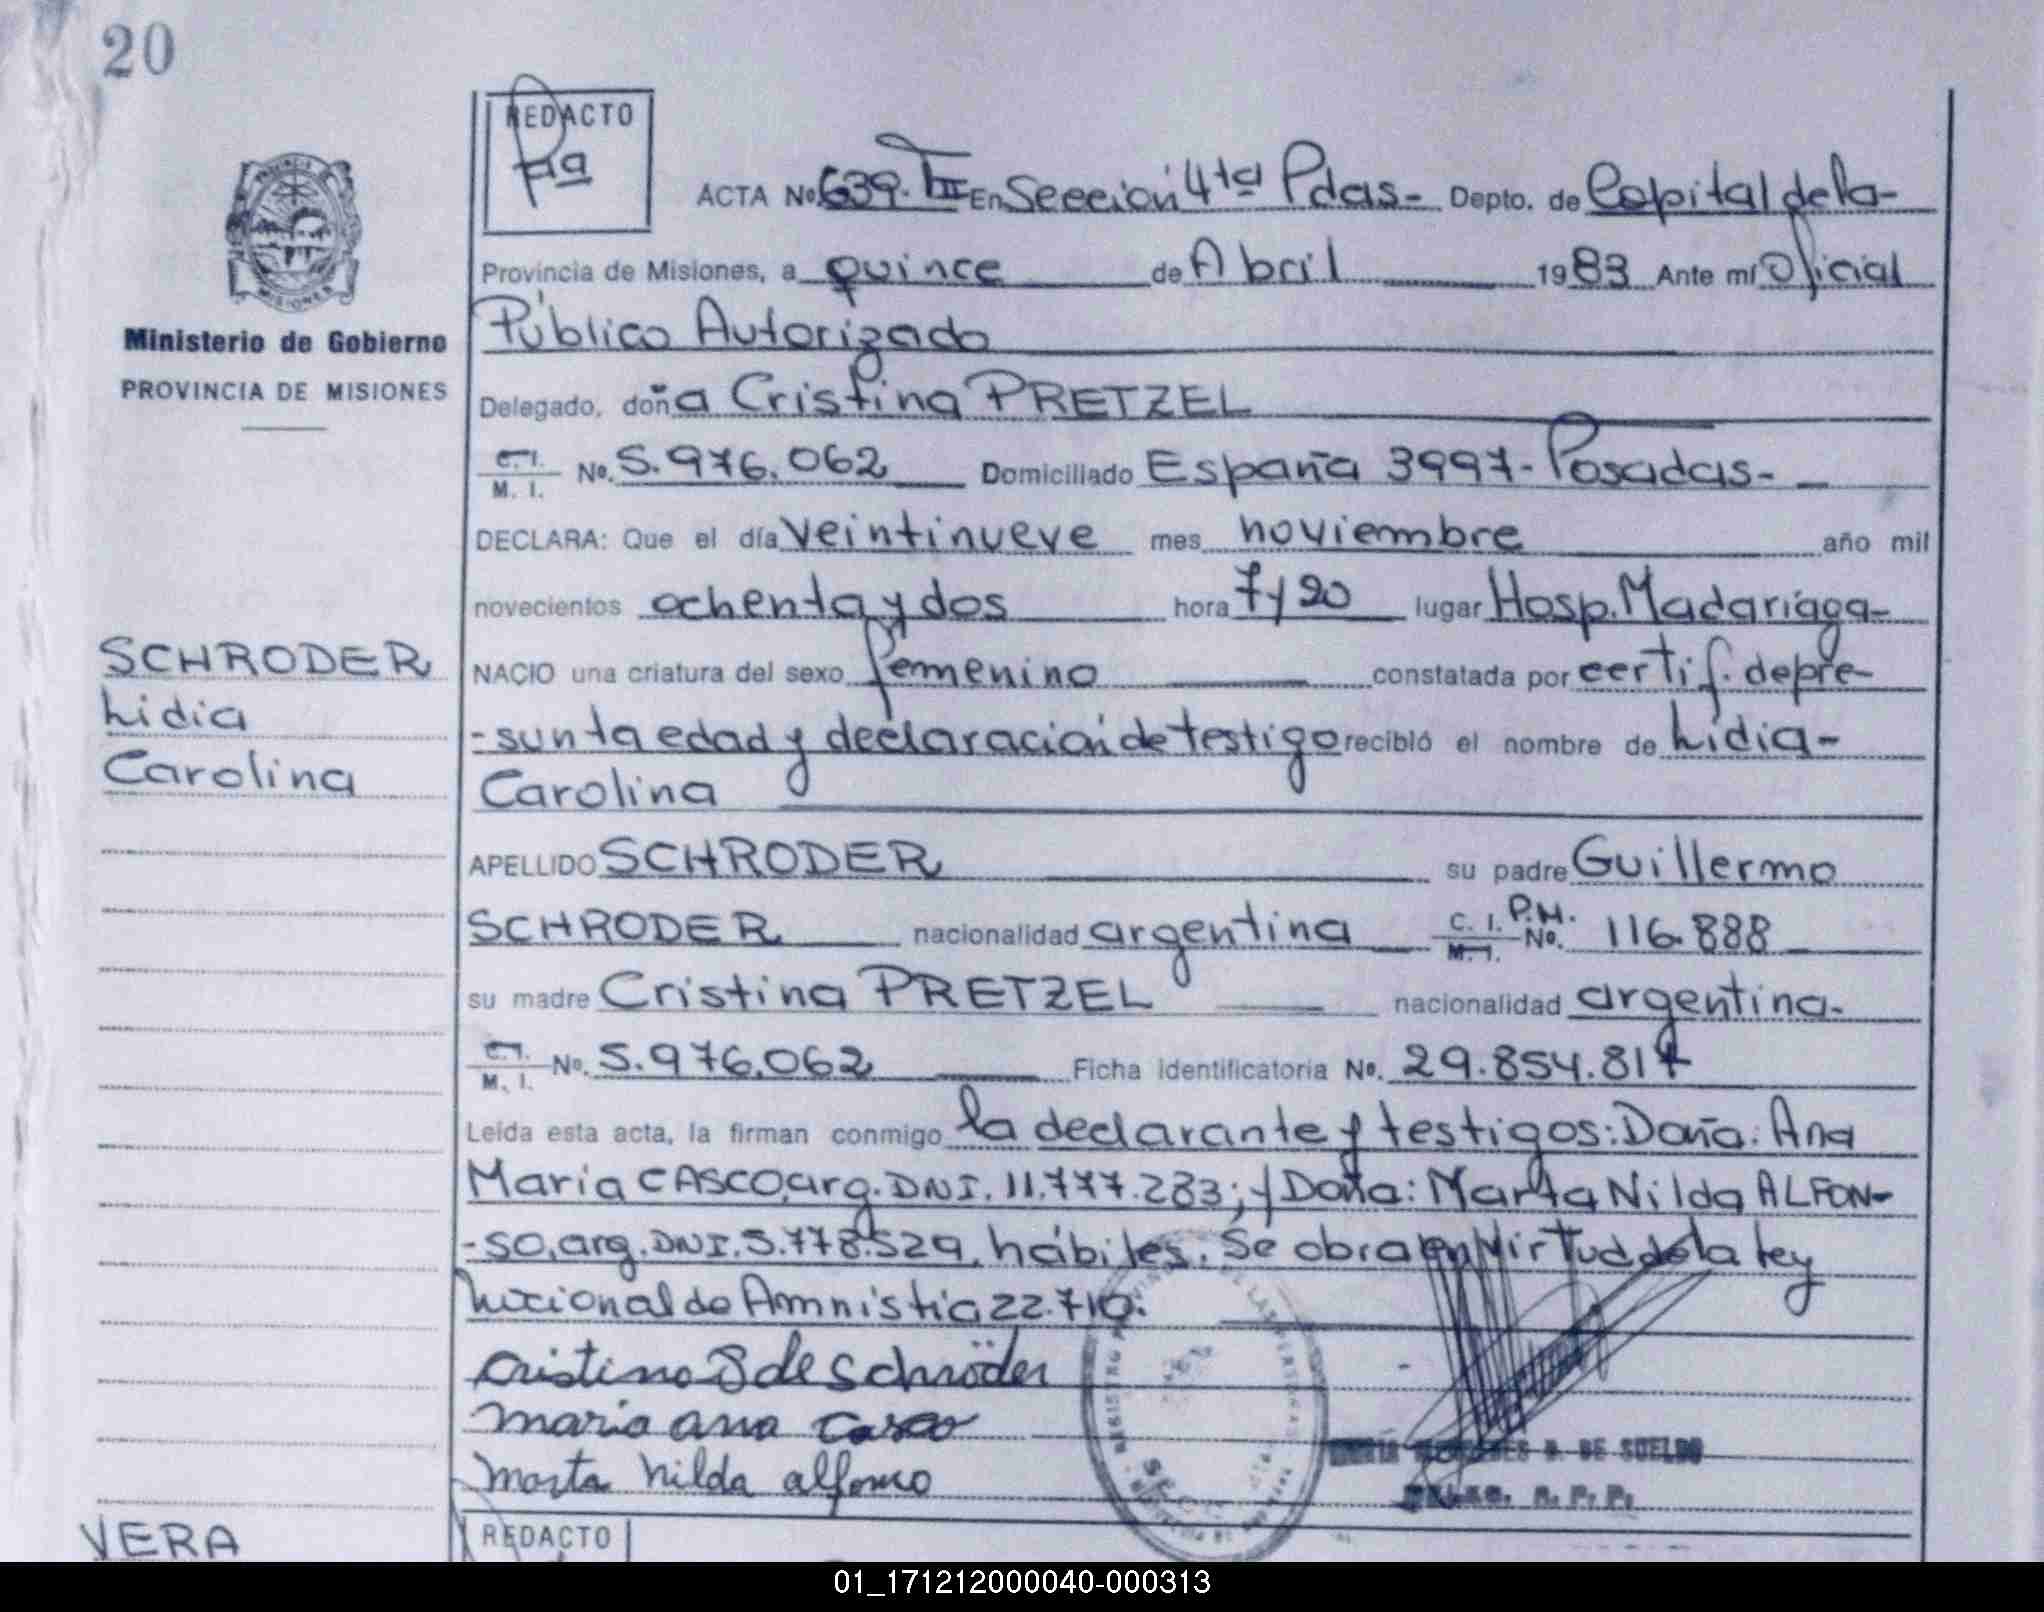 20
REDACTO
Pª
ACTA No 639. T III En Sección 4ta Pdas- Depto. de Capital de la-
Provincia de Misiones, a quince de Abril 1983 Ante mí Oficial
Público Autorizado
Ministerio de Gobierno
PROVINCIA DE MISIONES
Delegado, doña Cristina PRETZEL
C.I. M. I. No. 5.976.062 Domiciliado España 3997- Posadas-
DECLARA: Que el día veintinueve mes noviembre año mil
novecientos ochenta y dos hora 7/20 lugar Hosp. Madariaga-
SCHRODER
Lidia
Carolina
NACIO una criatura del sexo femenino constatada por certif. de pre-
-sunta edad y declaración de testigo recibió el nombre de Lidia-
Carolina
APELLIDO SCHRODER su padre Guillermo
SCHRODER nacionalidad argentina C. I. M.I. P.M. No. 116.888
su madre Cristina PRETZEL nacionalidad argentina-
C.I. M. I. No. 5.976.062 Ficha identificatoria No. 29.854.817
Leída esta acta, la firman conmigo la declarante y testigos: Doña: Ana
María CASCO, arg. DNI. 11.777.283; y Doña: Marta Nilda ALFON-
-SO, arg. DNI. 5.778.529, hábiles. Se obra en virtud de la ley
Nacional de Amnistía 22.710.
Cristina P de Schröder
maria ana Casco
marta nilda alfonso
DE SUELDO
VERA
REDACTO
01_171212000040-000313